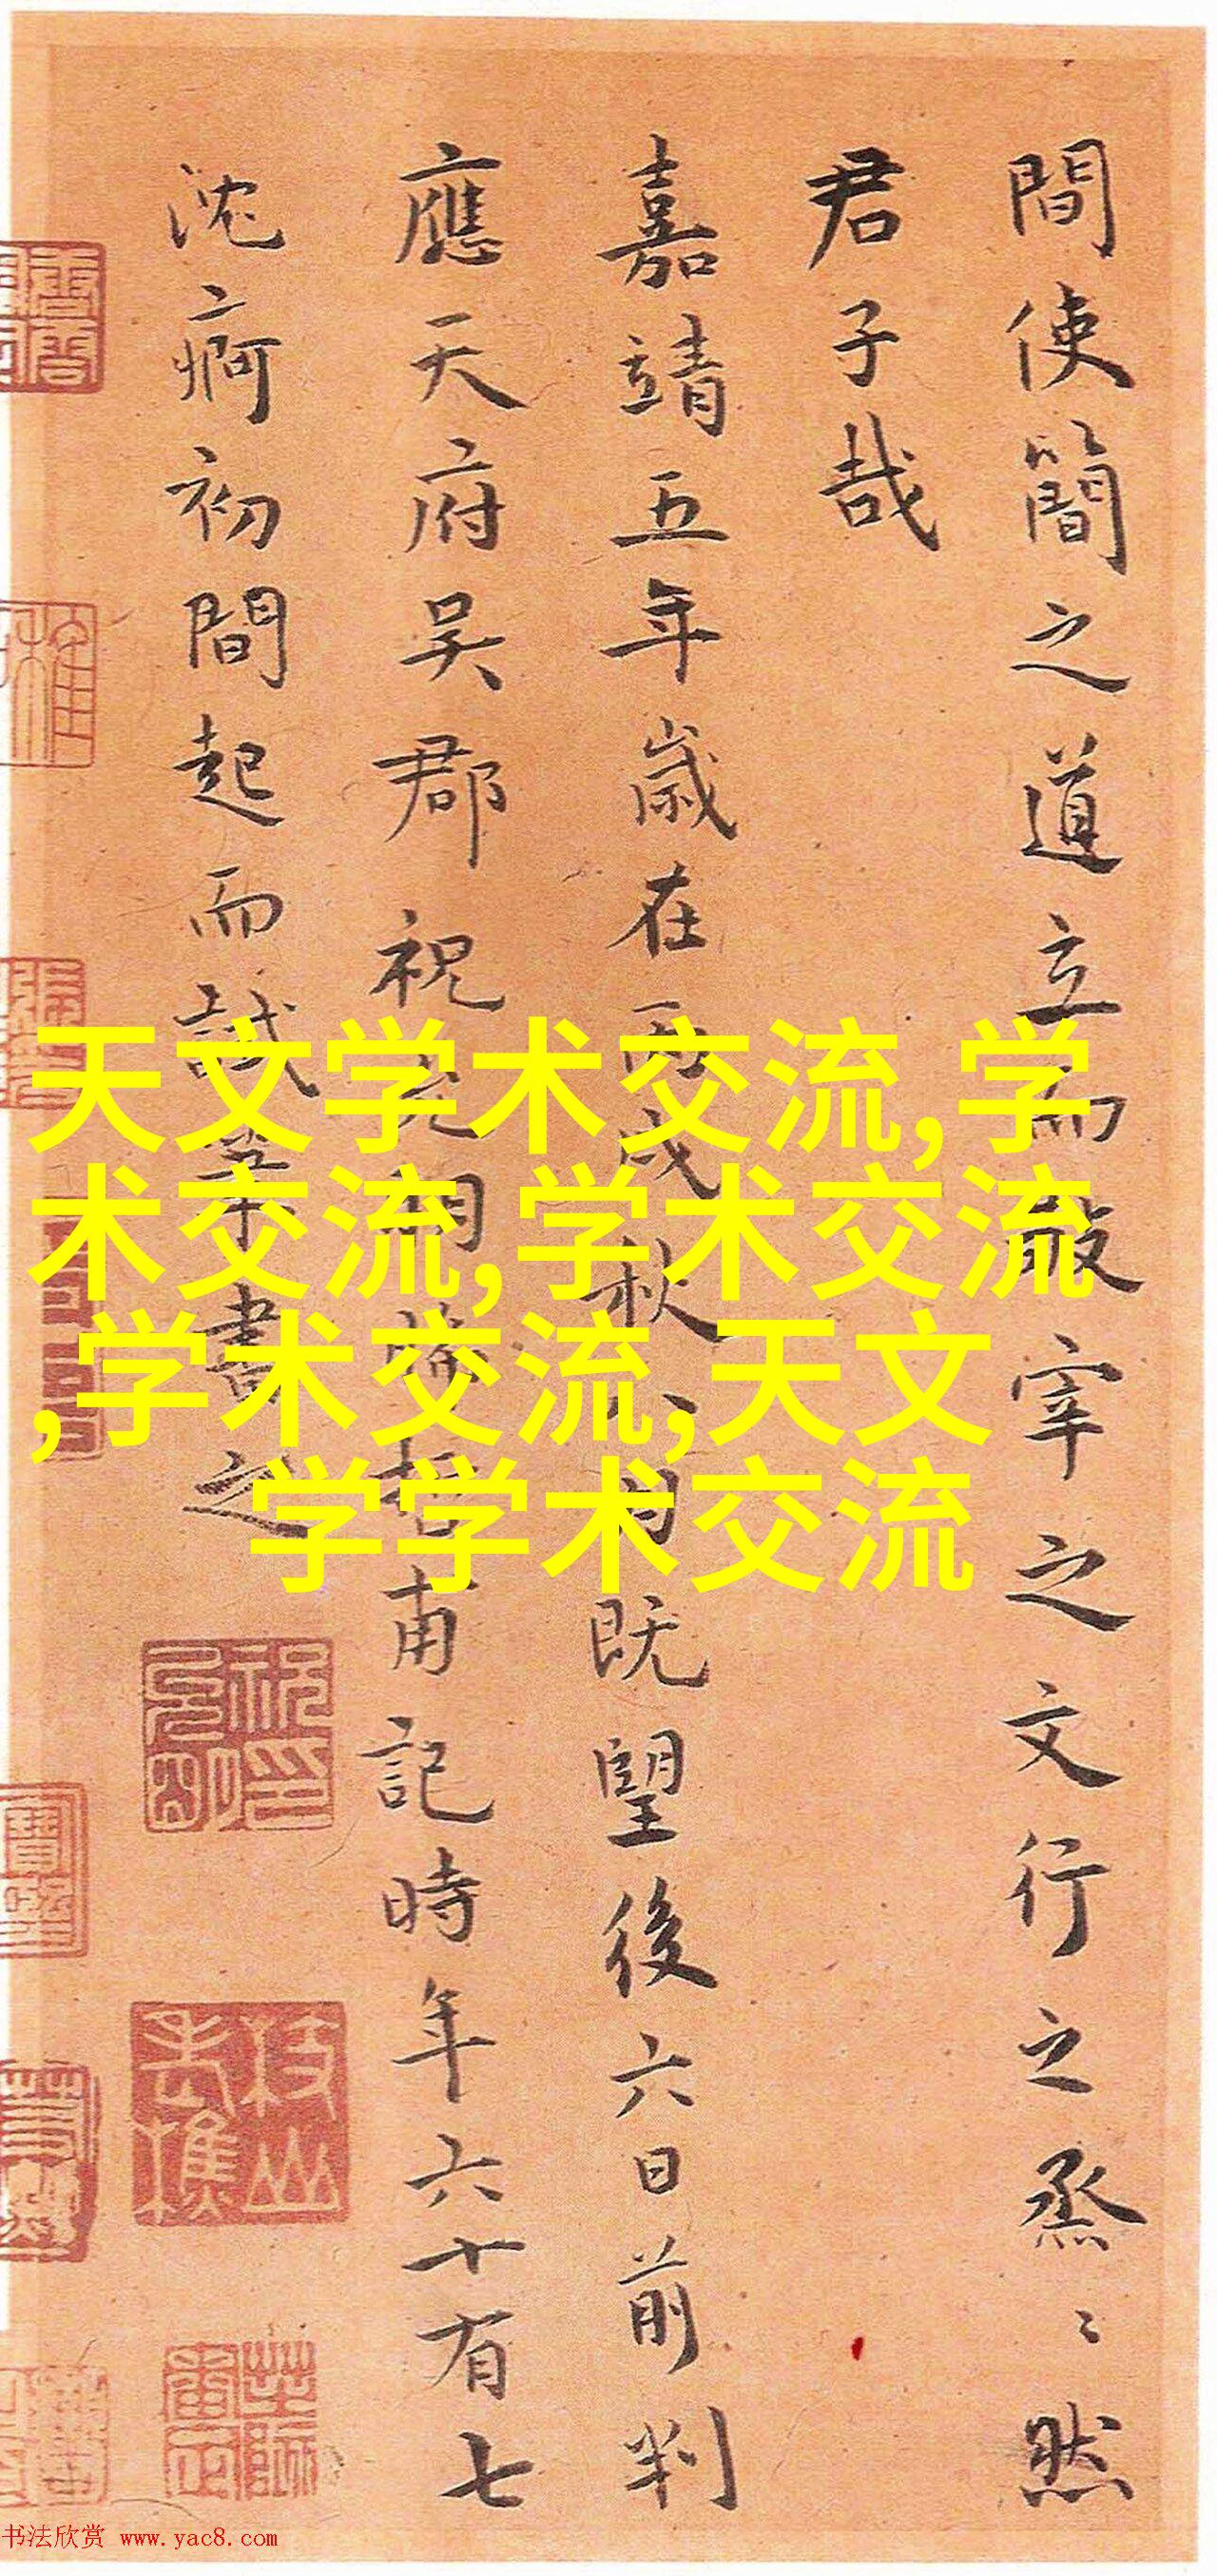 間使簡之道立而敲宰之文行之烝〻然
君子哉
嘉靖五年歲在丙戌秋八月既望後六日前判
應天府吴郡祝允明晞哲甫記時年六十有七
沈痾初間起而試筆書之
天文学术交流,学
术交流,学术交流
,学术交流,天文
学学术交流
祝允明印
枝山老樵
书法欣赏 www.yac8.com